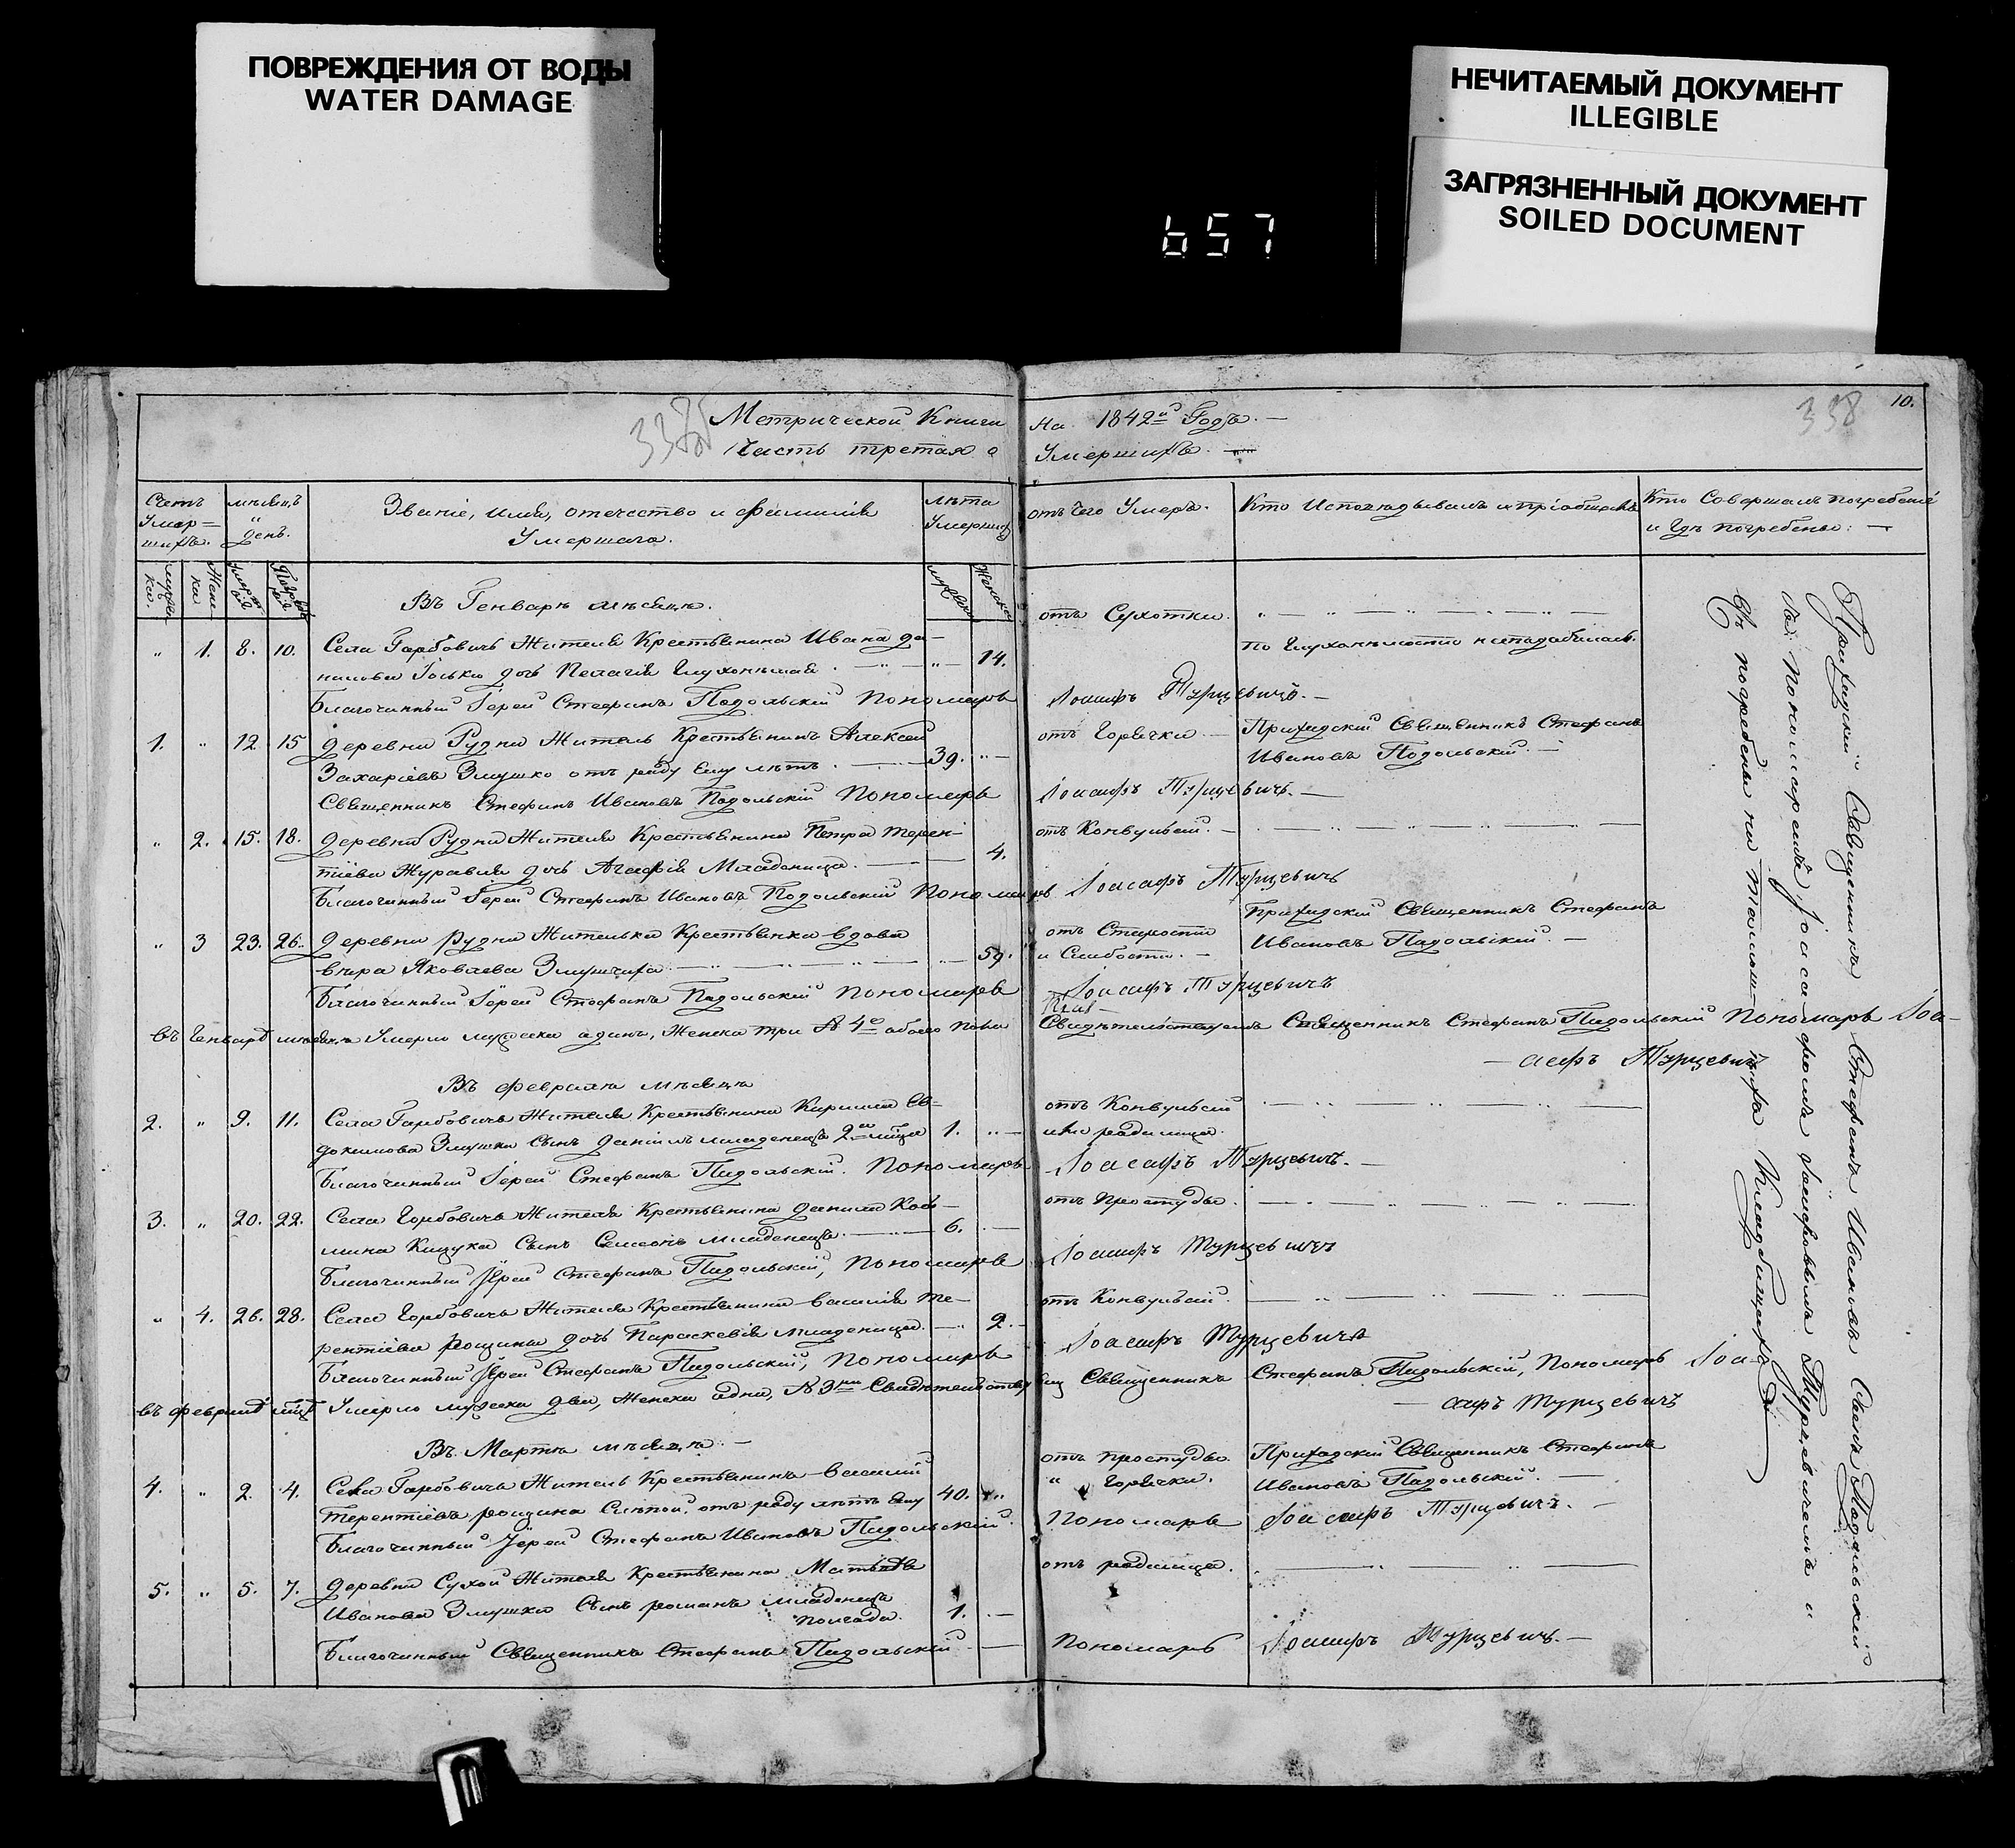 ПОВРЕЖДЕНИЯ ОТ ВОДЫ
WATER DAMAGE
НЕЧИТАЕМЫЙ ДОКУМЕНТ
ILLEGIBLE
ЗАГРЯЗНЕННЫЙ ДОКУМЕНТ
SOILED DOCUMENT
657
338 10.
Метрической Книги на 1842й Годъ. —
Часть третая о Умершихъ. —
Счетъ Умер=шихъ. мѣсяцъ и день. Званіе, имя, отечество и фамилія Умершаго. Лѣта Умершихъ отъ чего Умеръ. Кто Исповѣдывалъ и пріобщалъ Кто Совершалъ погребеніе и гдѣ погребены: —
Въ Генварѣ мѣсяцѣ.
" 1. 8. 10. Села Горбовичъ Жителя Крестьянина Ивана Да- отъ Сухотки.
нилова дочь Пелагія глухонѣмая. 14. по глухонѣмости
Благочинный Іерей Стефанъ Подольскій Пономарь Іоасафъ Турцевичъ. —
1. " 12 15 деревни Рудни Житель Крестьянинъ Алексей отъ Горячки — Приходскій Священникъ Стефанъ
Захаріевъ Змушко отъ роду ему лѣтъ. 39. Ивановъ Подольскій. —
Священникъ Стефанъ Ивановъ Подольскій Пономарь Іоасафъ Турцевичъ. —
" 2. 15. 18. деревни Рудни Жителя Крестьянина Петра Терен- отъ Конвульсій. —
тіева Журавля дочь Агафія Младеница. 4.
Благочинный Іерей Стефанъ Ивановъ Подольскій Пономарь Іоасафъ Турцевичъ
" 3 23. 26. деревни Рудни Жителька Крестьянка вдова отъ Старости Приходскій Священникъ Стефанъ
вѣра Яковлева Змушчиха 59. и Слабости. — Ивановъ Подольскій. —
Благочинный Іерей Стефанъ Подольскій Пономарь Іоасафъ Турцевичъ
въ Генварѣ мѣсяцѣ Умерло мужеска одинъ, Женска три А 4е обоего пола Священникъ Стефанъ Подольскій Пономарь Іоа-
—асафъ Турцевичъ
Въ Февралѣ мѣсяцѣ
2. " 9. 11. Села Горбовичъ Жителя Крестьянина Кирилла Ев- отъ Конвульсій
докимова Змушка Сынъ Даніилъ младенецъ 1. или родимца.
Благочинный Іерей Стефанъ Подольскій. Пономарь Іоасафъ Турцевичъ. —
3. " 20. 22. Села Горбовичъ Жителя Крестьянина Данилы Козь- отъ Простуды.
мина Сынъ Семеонъ младенецъ. 6.
Благочинный Іерей Стефанъ Подольскій, Пономарь Іоасафъ Турцевичъ
" 4. 26. 28. Села Горбовичъ Жителя Крестьянина Василія Те- отъ Конвульсій.
рентіева Рощины дочь Параскевія младеница. 2.
Благочинный Іерей Стефанъ Подольскій, Пономарь Іоасафъ Турцевичъ
въ февралѣ Умерло мужеска два, Женска одна, А 3ми Священникъ Стефанъ Подольскій, Пономарь Іоа-
—сафъ Турцевичъ
Въ Мартѣ мѣсяцѣ. —
4. " 2 4. Села Горбовичъ Житель Крестьянинъ Василій отъ простуды Приходскій Священникъ Стефанъ
Терентіевъ Рощина Слѣпой, отъ роду лѣтъ ему 40. " Горячки. Ивановъ Подольскій. —
Благочинный Іерей Стефанъ Ивановъ Подольскій. Пономарь Іоасафъ Турцевичъ. —
5. " 5. 7. деревни Сухой Жителя Крестьянина Матвѣя отъ родимца.
Иванова Змушка Сынъ Романъ младенецъ
полгода. 1.
Благочинный Священникъ Стефанъ Подольскій — Пономарь Іоасафъ Турцевичъ. —
Приходскій Священникъ Стефанъ Ивановъ Сынъ Подольскій
Пономаремъ Іоасафомъ Іосифовымъ Турцевичемъ и
погребены на Кладбищахъ